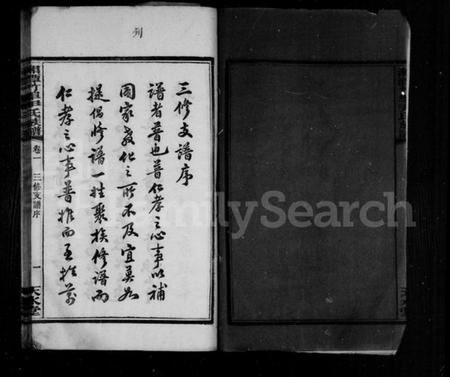 列
三修支譜序
譜者普也普仁孝之心事以補
國家教化之所不及宜莫如
提倡修譜一姓聚族修譜而
仁孝之心事普推而至於萬
氏族譜
卷一
三修支譜序
一
天水堂
FamilySearch